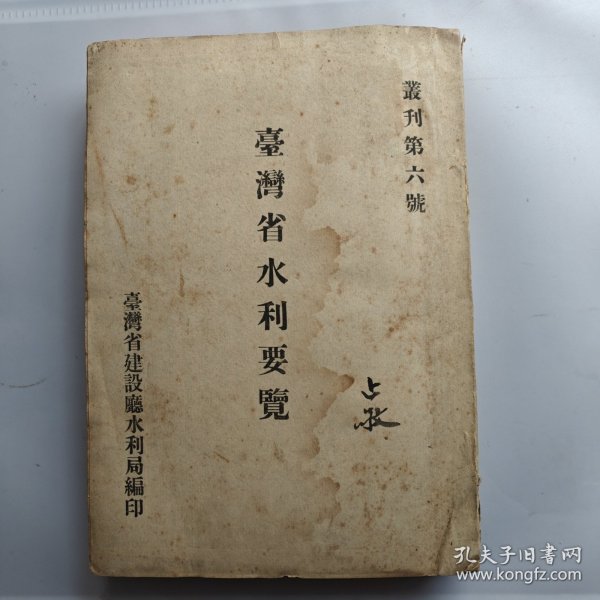 叢刊第六號
臺灣省水利要覽
臺灣省建設廳水利局編印
孔夫子旧书网
www.kongfz.com